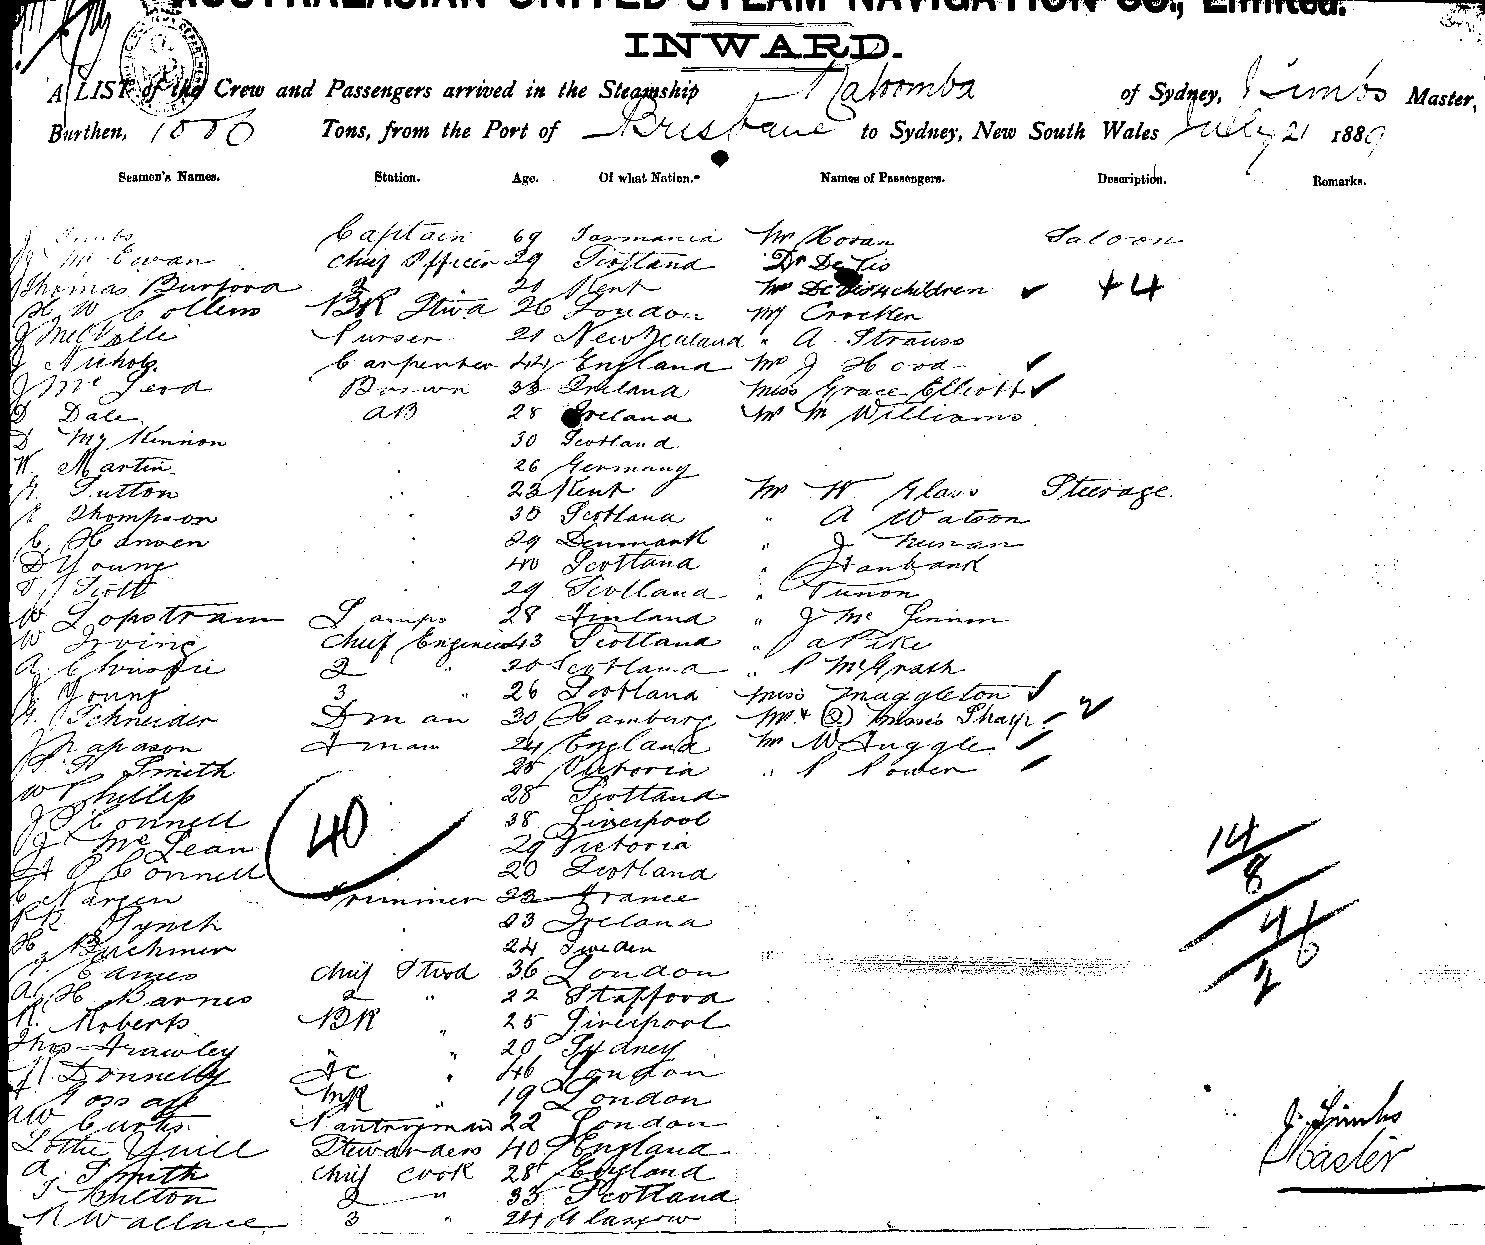 AUSTRALASIAN UNITED STEAM NAVIGATION CO., Limited.
INWARD.
A LIST of the Crew and Passengers arrived in the Steamship Katoomba of Sydney, Timbs Master,
Burthen, 1006 Tons, from the Port of Brisbane to Sydney, New South Wales July 21 1889
Seamen's Names. Station. Age. Of what Nation. Names of Passengers. Description. Remarks.
J Timbs Captain 69 Tasmania Mr Horan Saloon
McEwan Chief Officer 29 Scotland Dr De Lis
Thomas Burford 2 Kent Mr children +4
H W Collens BK Stwd 26 London Mr Crocker
J Purser 21 New Zealand " A Strauss
J Nichols Carpenter 44 England Mr J Hood
J Mc Bosun 33 Ireland Miss Grace Elliott
D Dale AB 28 Ireland Mr M Williams
D McKinnon 30 Scotland
W. Martin 26 Germany
Sutton 23 Kent Mr W Glass Steerage
Thompson 30 Scotland " A Watson
C. Hansen 29 Denmark " J
D Young 40 Scotland " Hanbank
Scott 29 Scotland "
W Lopstram Lamps 28 Finland " J Mc
W Irving Chief Engineer 43 Scotland " A Pike
A Christie 2 " 20 Scotland " P McGrath
Young 3 " 26 Scotland Miss Maggleton
Schneider Dman 30 Hamburg Mr & (2) Misses Sharp 2
J Fman 24 England Mr W Tuggle
Smith 25 Victoria " P Power
W Phillips 28 Scotland
J O'Connell 38 Liverpool
40
J McLean 29 Victoria
O'Connell 20 Scotland
14
8
Trimmer 23 France
Lynch 23 Ireland
46
H 24 Sweden
J Eames Chief Stwd 36 London
2
A H Barnes 2 " 22 Stafford
R. Roberts BK " 25 Liverpool
Thos Frawley " 20 Sydney
Donnelly FC " 46 London
MR " 19 London
AW Curtis Pantryman 22 London
J. Timbs
Lottie Quill Stewardess 40 England
Master
A. Smith Chief Cook 28 England
2 " 33 Scotland
R Wallace 3 " 24 Glasgow